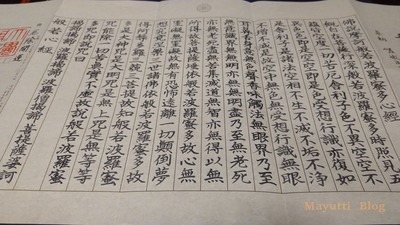 佛說摩訶般若波羅蜜多心經
般若波羅蜜多時照見五
一切苦厄舎利子色不異空空不
空即是色受想行識亦復如
是諸法空相不生不滅不垢不浄
不増不減是故空中無色無受想行識無眼
耳鼻舌身意無色聲香味觸法無眼界乃至
無意識界無無明亦無無明盡乃至無老死
亦無老死盡無苦集滅道無智亦無得以無
所得故菩提薩埵依般若波羅蜜多故心無
罣礙無罣礙故無有恐怖遠離一切顛倒夢
想究竟涅槃三世諸佛依般若波羅蜜多故
得阿耨多羅三藐三菩提故知般若波羅蜜
多是大神咒是大明咒是無上咒是無等等
咒能除一切苦真實不虚故説般若波羅蜜
多咒即説咒曰
揭諦揭諦 波羅揭諦 波羅僧揭諦 菩提薩婆訶
般若心經
Mayutti Blog